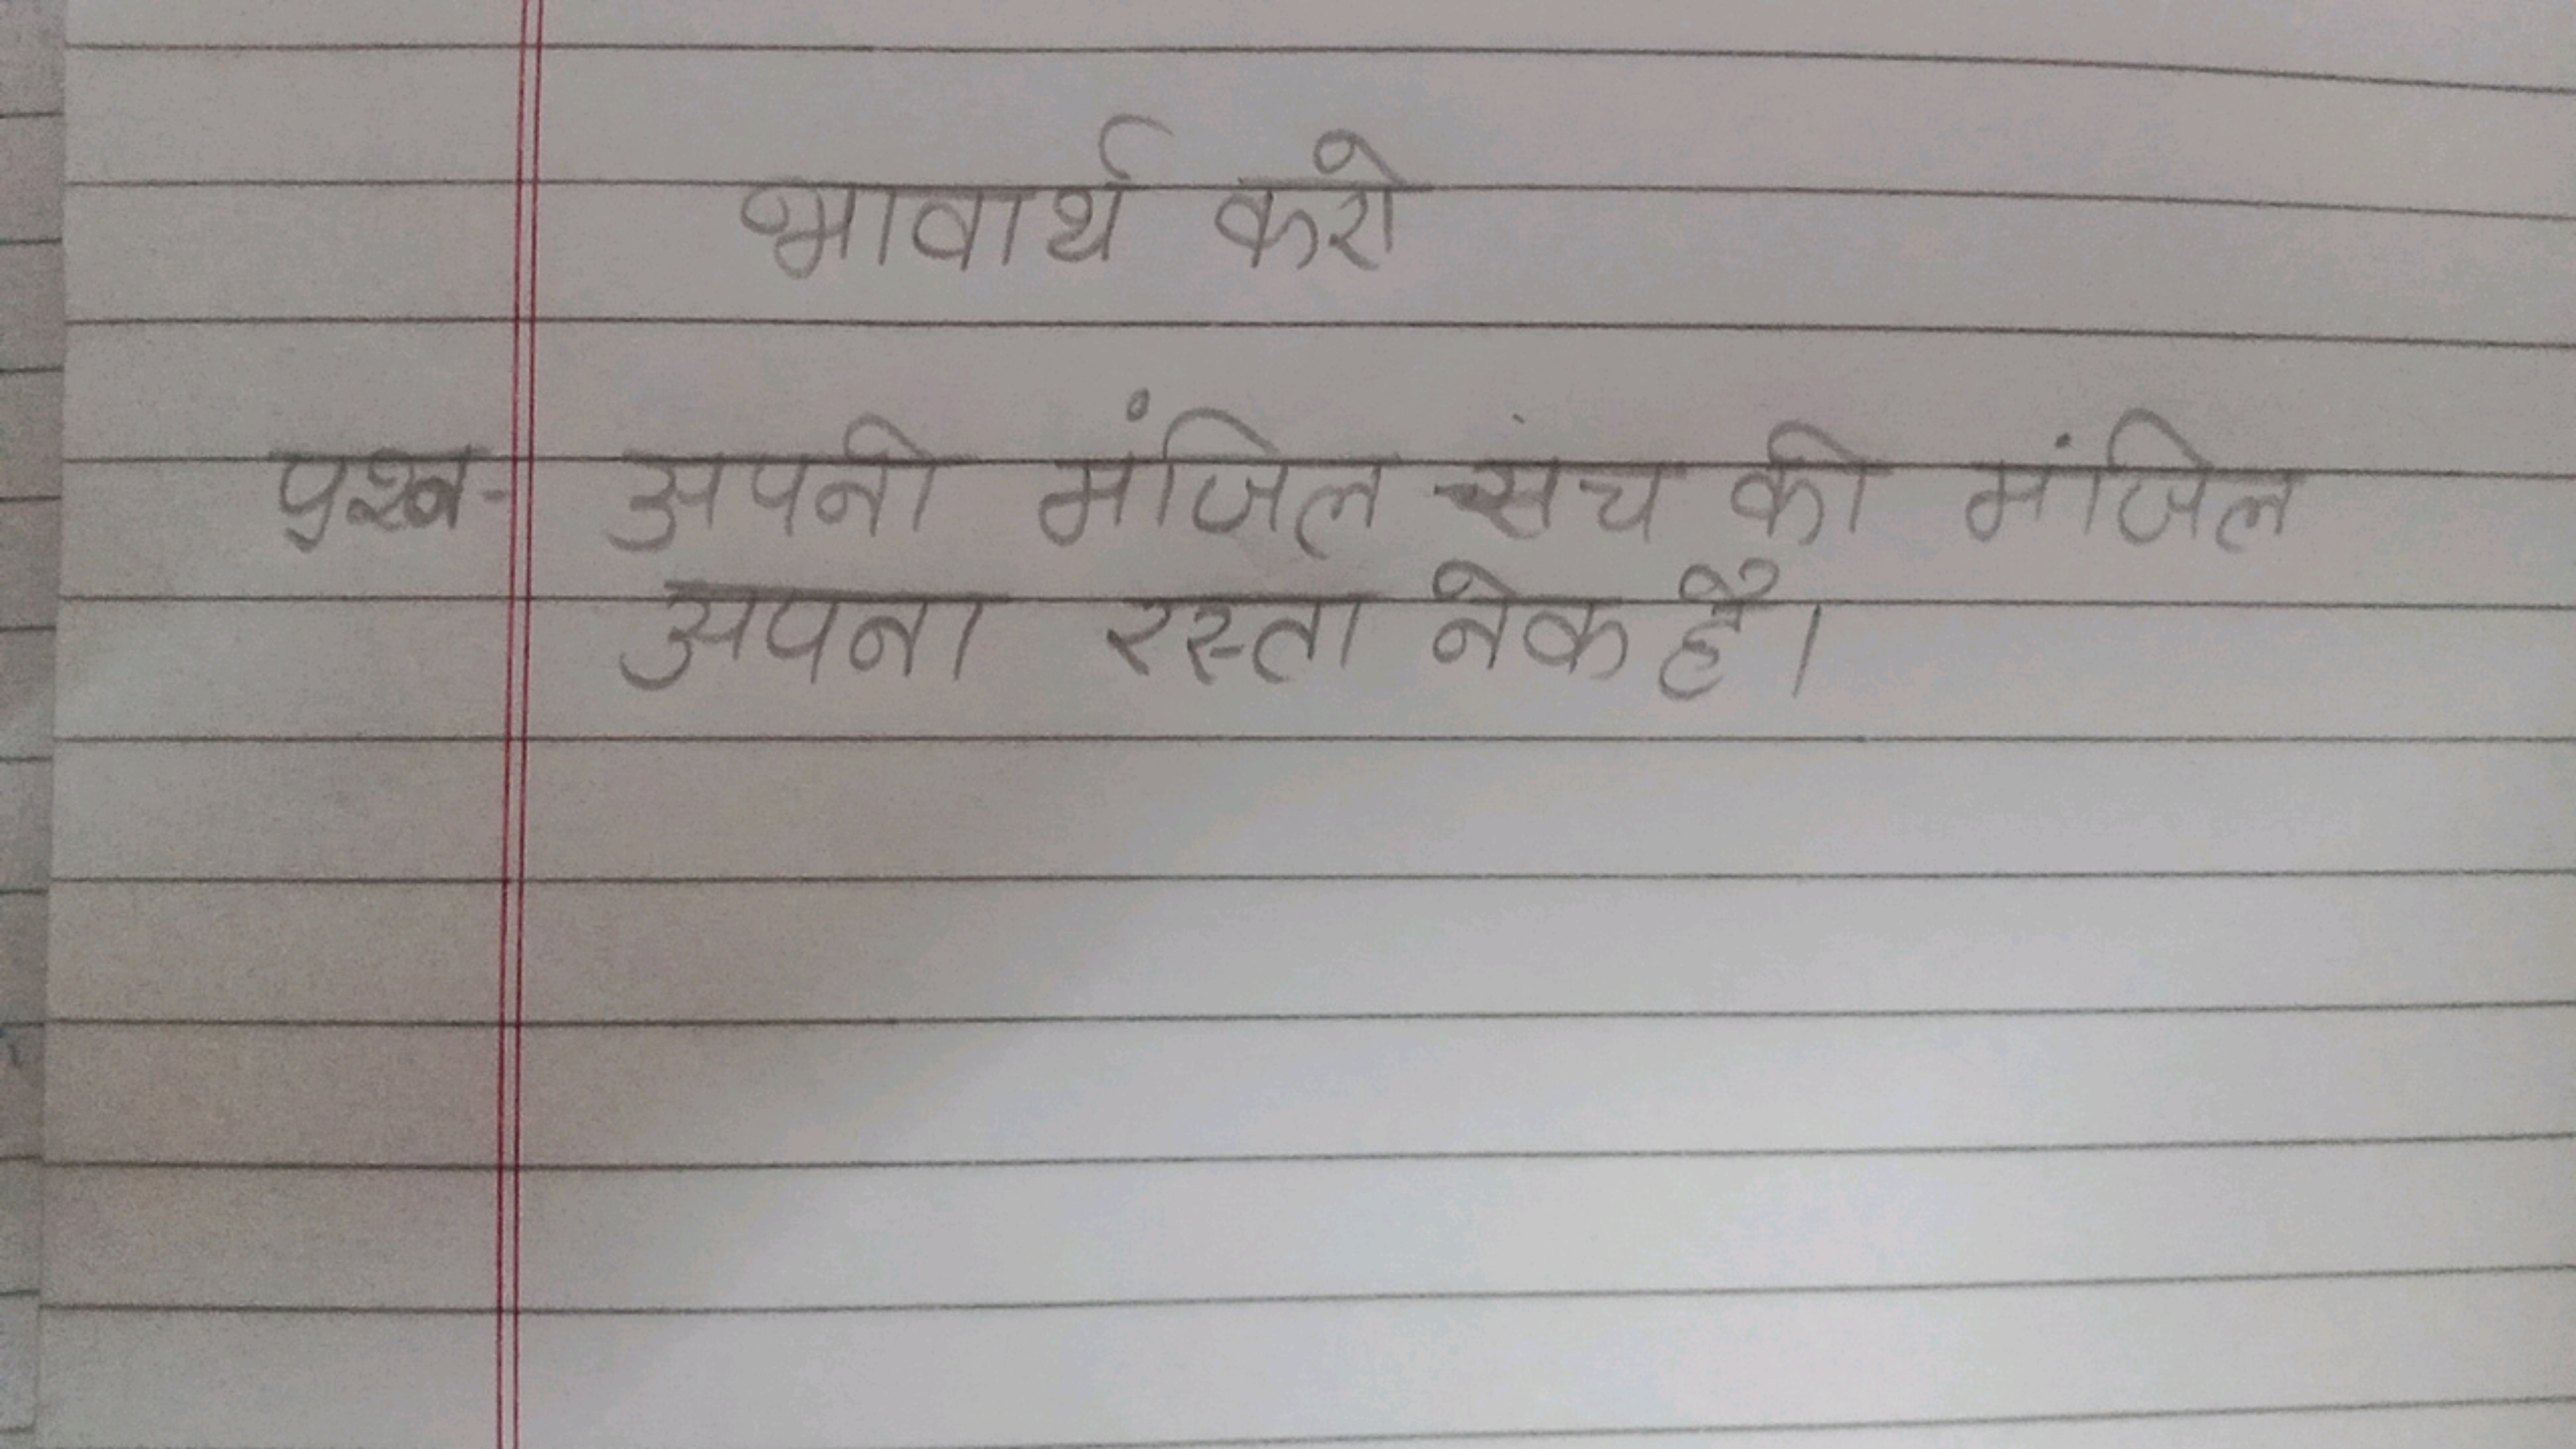 भावार्थ करो
प्रश्न- अपनी मंजिल संच की मंजिल
अपना रस्ता नेक है।